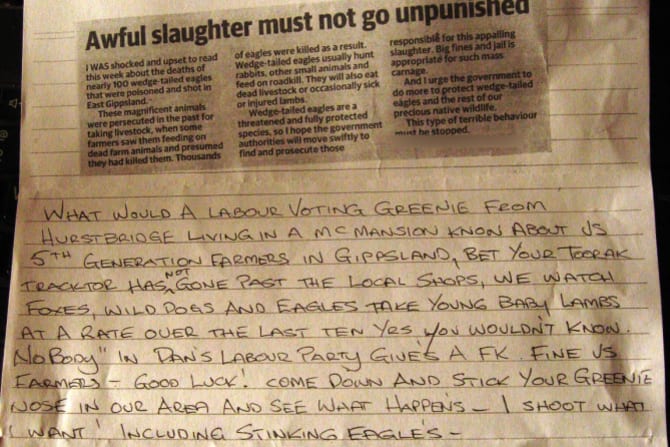 Awful slaughter must not go unpunished
I WAS shocked and upset to read
this week about the deaths of
nearly 100 wedge-tailed eagles
that were poisoned and shot in
East Gippsland.
These magnificent animals
were persecuted in the past for
taking livestock, when some
farmers saw them feeding on
dead farm animals and presumed
they had killed them. Thousands
of eagles were killed as a result.
Wedge-tailed eagles usually hunt
rabbits, other small animals and
feed on roadkill. They will also eat
dead livestock or occasionally sick
or injured lambs.
Wedge-tailed eagles are a
threatened and fully protected
species, so I hope the government
authorities will move swiftly to
find and prosecute those
responsible for this appalling
slaughter. Big fines and jail is
appropriate for such mass
carnage.
And I urge the government to
do more to protect wedge-tailed
eagles and the rest of our
precious native wildlife.
This type of terrible behaviour
must be stopped.
WHAT WOULD A LABOUR VOTING GREENIE FROM
HURSTBRIDGE LIVING IN A MCMANSION KNOW ABOUT US
5TH GENERATION FARMERS IN GIPPSLAND, BET YOUR TOORAK
TRACKTOR HAS NOT GONE PAST THE LOCAL SHOPS, WE WATCH
FOXES, WILD DOGS AND EAGLES TAKE YOUNG BABY LAMBS
AT A RATE OVER THE LAST TEN YRS YOU WOULDN'T KNOW.
NOBODY" IN DAN'S LABOUR PARTY GIVE'S A FK. FINE US
FARMERS - GOOD LUCK! COME DOWN AND STICK YOUR GREENIE
NOSE IN OUR AREA AND SEE WHAT HAPPEN'S - I SHOOT WHAT
I WANT! INCLUDING STINKING EAGLE'S -